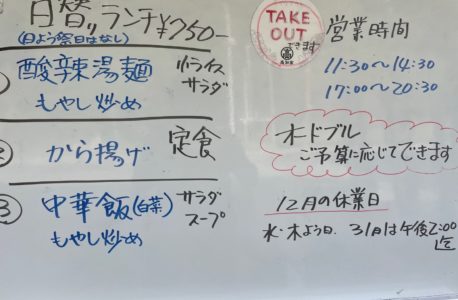 日替りランチ¥750-
(日よう祭日はなし)
酸辣湯麺 小ライス サラダ
もやし炒め
② から揚げ 定食
③ 中華飯(白菜) サラダ スープ
もやし炒め
TAKE OUT
できます
営業時間
11:30〜14:30
17:00〜20:30
オードブル
ご予算に応じてできます
12月の休業日
水・木よう日、31日は午後2:00
迄